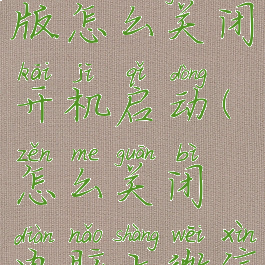 版怎么关闭
kāi jī qǐ dòng
开机启动(
zěn me guān bì
怎么关闭
diàn nǎo shàng wēi xìn
电脑上微信